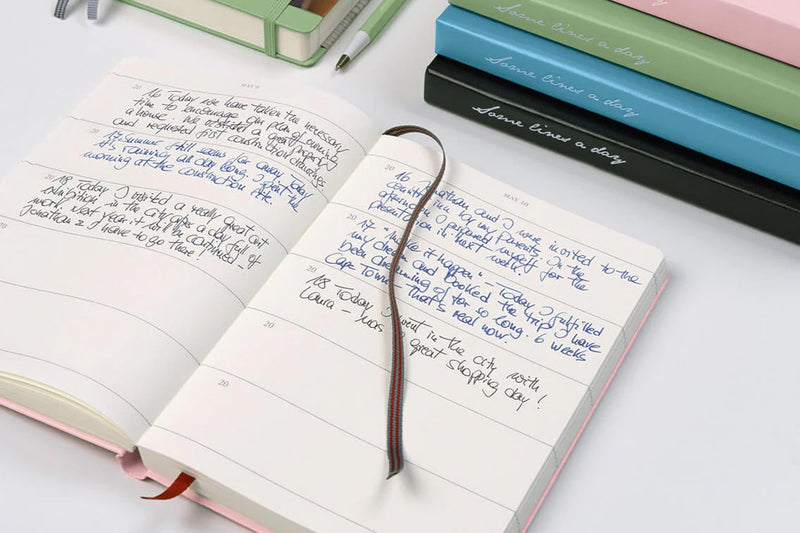 MAY 9
20
16 Today we have taken the necessary
time to encourage our plan of owning
a house. We operated a great
and requested first construction
20
17 Summer still seems far away. Today
it's raining all day long. I spent the
morning at the construction site.
20
18 Today I visited a really great art
exhibition in the city after a day full of
work. Next year it will be continued –
Jonathan & I have to go there!
20
MAY 10
20
16 Jonathan and I were invited to the
country inn by my parents. In the
afternoon I prepared myself for the
presentation in next week.
20
17 "Make it happen" – Today I fulfilled
my dream and booked the trip I have
been dreaming of for so long. 6 weeks
Cape Town – that's real now!
20
18 Today I went in the city with
Laura – was a great shopping day!
20
20
Some lines a day
Some lines a day
Some lines a day